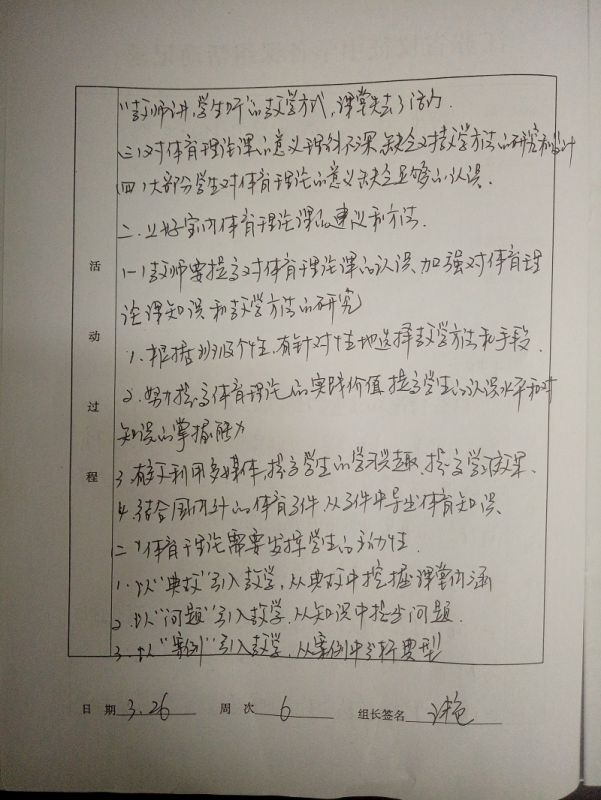 “教师讲，学生听”的教学方式，课堂失去了活力.
(三)对体育理论课的意义理解不深,缺乏对教学方法的研究和设计
(四)大部分学生对体育理论的意义缺乏足够的认识.
二.上好室内体育理论课的建议和方法.
(一)教师要提高对体育理论课的认识,加强对体育理
论课知识和教学方法的研究
1.根据班级个性,有针对性地选择教学方法和手段.
2.努力提高体育理论的实践价值,提高学生的认识水平和对
知识的掌握能力
3.有效利用多媒体,提高学生的学习兴趣,提高学习效果.
4.结合国内外的体育事件,从事件中导出体育知识.
(二)体育理论需要发挥学生的主动性.
1.以“典故”引入教学,从典故中挖掘课堂内涵
2.以“问题”引入教学,从知识中提出问题.
3.以“案例”引入教学,从案例中分析典型
活动过程
日 期 3.26 周 次 6 组长签名